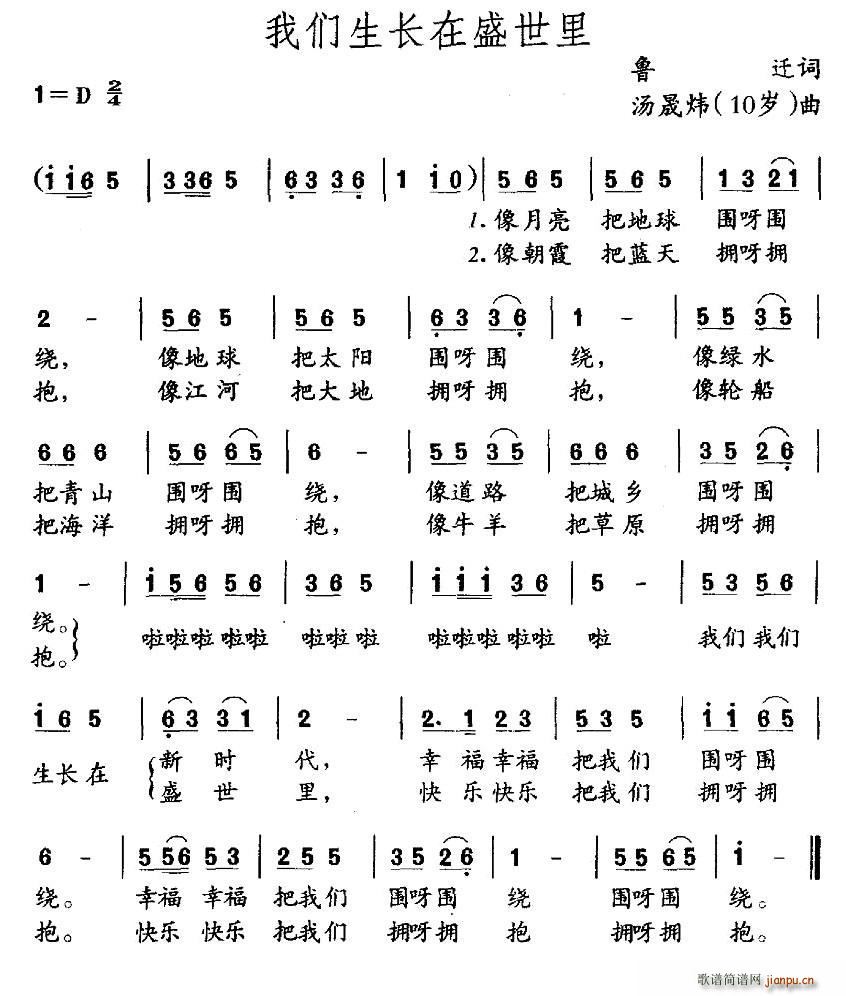 我们生长在盛世里
鲁 迁词
1=D 2/4
汤晟炜(10岁)曲
(i i6 5 | 3 36 5 | 6 3 3 6 | 1 i0) | 56 5 | 56 5 | 13 21 |
1.像月亮 把地球 围呀围
2.像朝霞 把蓝天 拥呀拥
2 - | 56 5 | 56 5 | 63 36 | 1 - | 55 35 |
绕, 像地球 把太阳 围呀围 绕, 像绿水
抱, 像江河 把大地 拥呀拥 抱, 像轮船
66 6 | 56 65 | 6 - | 55 35 | 66 6 | 35 26 |
把青山 围呀围 绕, 像道路 把城乡 围呀围
把海洋 拥呀拥 抱, 像牛羊 把草原 拥呀拥
1 - | i56 56 | 36 5 | iii 36 | 5 - | 53 56 |
绕。 啦啦啦 啦啦 啦啦 啦 啦啦啦啦啦 啦 我们我们
抱。
i6 5 | 63 31 | 2 - | 2. 1 23 | 53 5 | ii 65 |
生长在 新 时 代, 幸 福幸福 把我们 围呀围
盛 世 里, 快 乐快乐 把我们 拥呀拥
6 - | 556 53 | 25 5 | 35 26 | 1 - | 55 65 | i - ‖
绕。 幸福 幸福 把我们 围呀围 绕 围呀围 绕。
抱。 快乐 快乐 把我们 拥呀拥 抱 拥呀拥 抱。
歌谱简谱网 jianpu.cn